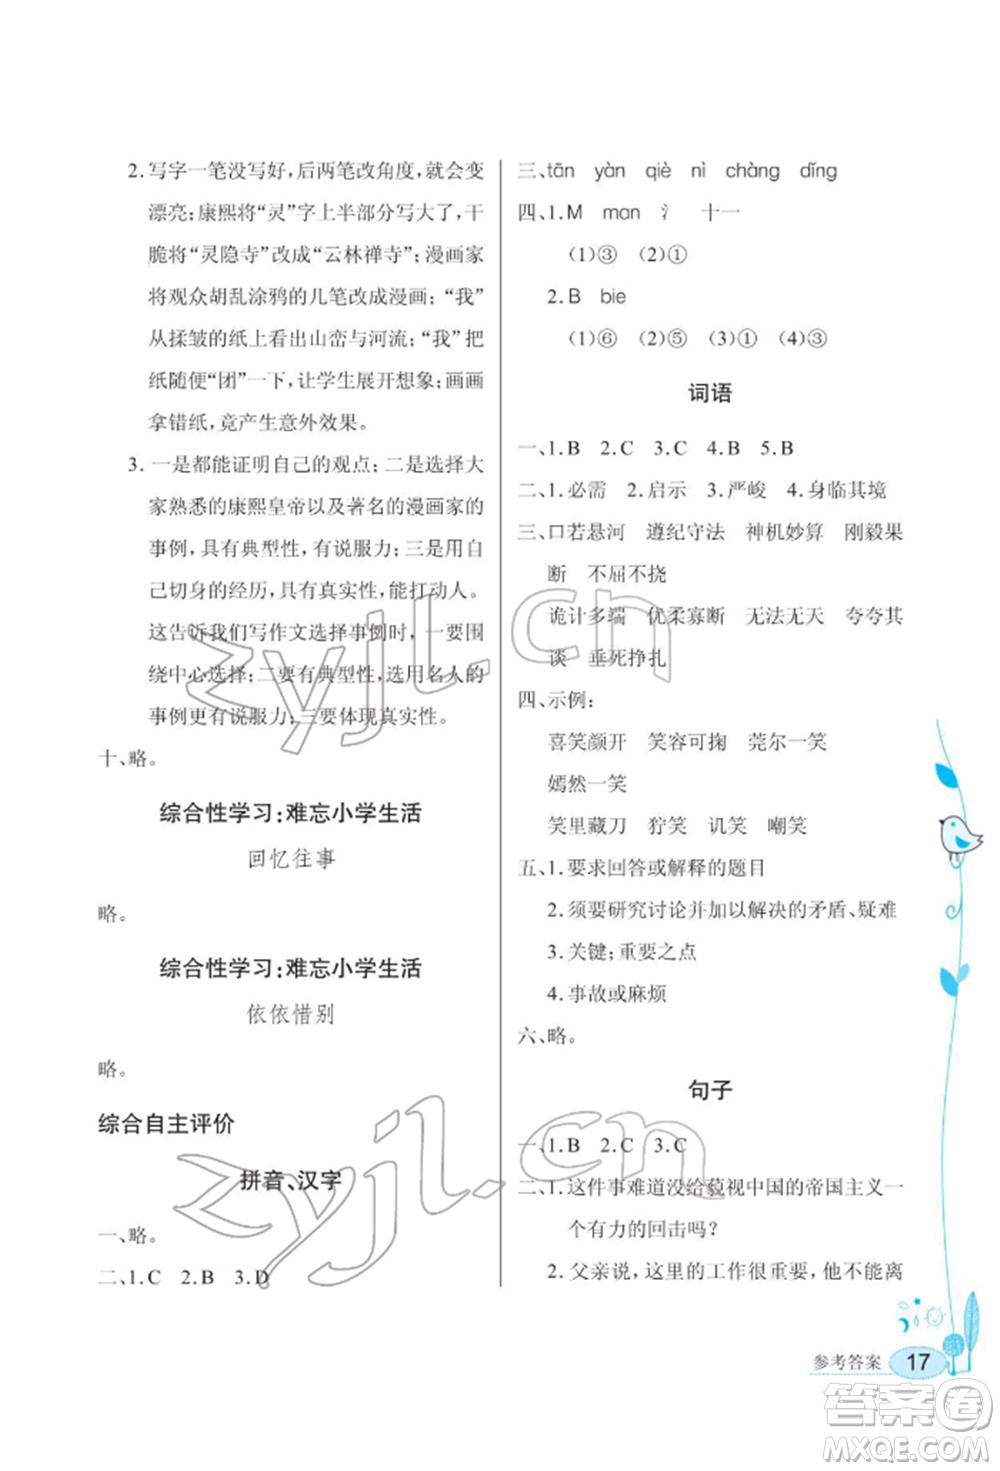 2. 写字一笔没写好,后两笔改角度,就会变
漂亮;康熙将“灵”字上半部分写大了,干
脆将“灵隐寺”改成“云林禅寺”;漫画家
将观众胡乱涂鸦的几笔改成漫画;“我”
从揉皱的纸上看出山峦与河流;“我”把
纸随便“团”一下,让学生展开想象;画画
拿错纸,竟产生意外效果。
3. 一是都能证明自己的观点;二是选择大
家熟悉的康熙皇帝以及著名的漫画家的
事例,具有典型性,有说服力;三是以自
己切身的经历,具有真实性,能打动人。
这告诉我们写作文选择事例时,一要围
绕中心选择;二要有典型性,选用名人的
事例更有说服力;三要体现真实性。
十、略。
综合性学习:难忘小学生活
回忆往事
略。
综合性学习:难忘小学生活
依依惜别
略。
综合自主评价
拼音、汉字
一、略。
二、1.C 2.B 3.D
三、tān yàn qiè nì chàng dǐng
四、1.M man 氵 十一
(1)③ (2)①
2.B bie
(1)⑥ (2)⑤ (3)① (4)③
词语
一、1.B 2.C 3.C 4.B 5.B
二、1.必需 2.启示 3.严峻 4.身临其境
三、口若悬河 遵纪守法 神机妙算 刚毅果
断 不屈不挠
诡计多端 优柔寡断 无法无天 夸夸其
谈 垂死挣扎
四、示例:
喜笑颜开 笑容可掬 莞尔一笑
嫣然一笑
笑里藏刀 狞笑 讥笑 嘲笑
五、1.要求回答或解释的题目
2.须要研究讨论并加以解决的矛盾、疑难
3.关键;重要之点
4.事故或麻烦
六、略。
句子
一、1.B 2.C 3.C
二、1.这件事难道没给藐视中国的帝国主义一
个有力的回击吗?
2.父亲说,这里的工作很重要,他不能离
参考答案 17
zyjl.cn
zyjl.cn
答案卷
MXQE.COM